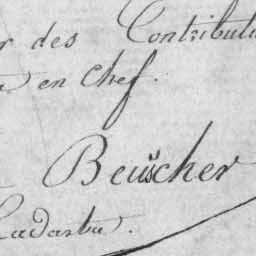 r des Contributi
en chef.
Beüscher
Cadastre.